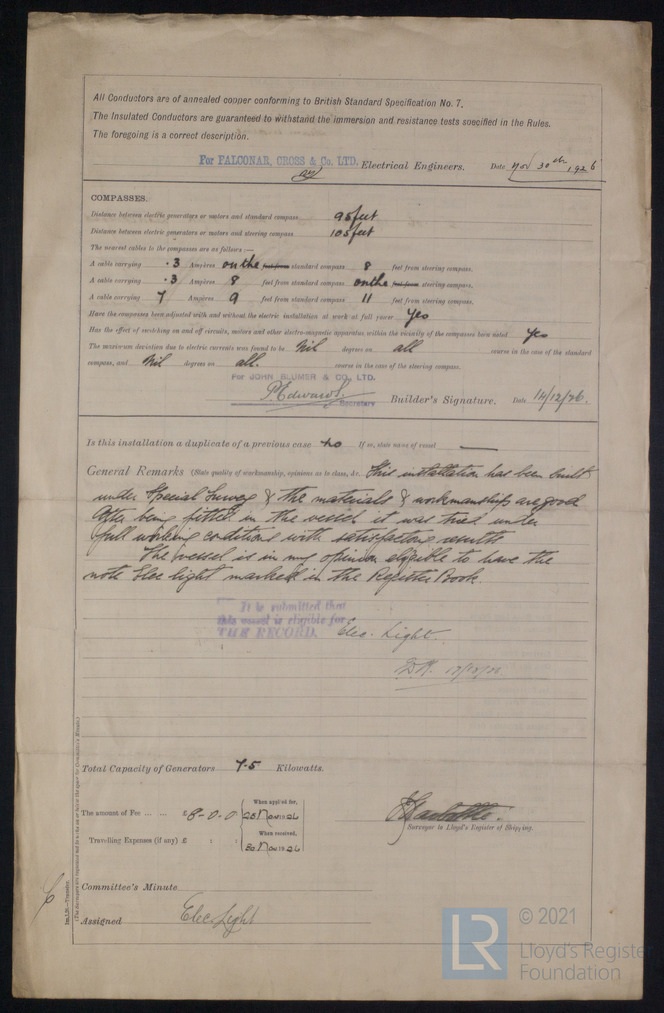 All Conductors are of annealed copper conforming to British Standard Specification No. 7.
The Insulated Conductors are guaranteed to withstand the immersion and resistance tests specified in the Rules.
The foregoing is a correct description.
For FALCONAR, CROSS & Co. LTD. Electrical Engineers. Date Nov 30th 1926
COMPASSES.
Distance between electric generators or motors and standard compass 95 feet
Distance between electric generators or motors and steering compass 105 feet
The nearest cables to the compasses are as follows:—
A cable carrying .3 Ampères on the feet from standard compass 8 feet from steering compass.
A cable carrying .3 Ampères 8 feet from standard compass on the feet from steering compass.
A cable carrying 7 Ampères 9 feet from standard compass 11 feet from steering compass.
Have the compasses been adjusted with and without the electric installation at work at full power Yes
Has the effect of switching on and off circuits, motors and other electro-magnetic apparatus within the vicinity of the compasses been noted Yes
The maximum deviation due to electric currents was found to be Nil degrees on all course in the case of the standard
compass, and Nil degrees on all. course in the case of the steering compass.
For JOHN BLUMER & CO., LTD.
P. Edwards. Secretary Builder's Signature. Date 14/12/26.
Is this installation a duplicate of a previous case No If so, state name of vessel —
General Remarks (State quality of workmanship, opinions as to class, &c. This installation has been built
under Special Survey & the materials & workmanship are good
After being fitted in the vessel it was tried under
full working conditions with satisfactory results
The vessel is in my opinion eligible to have the
note Elec light marked in the Register Book.
It is submitted that
this vessel is eligible for
THE RECORD. Elec. Light.
Total Capacity of Generators 7.5 Kilowatts.
The amount of Fee ... ... £8-0-0 When applied for, 25 Nov 1926
Travelling Expenses (if any) £ : : When received, 30 Nov 1926
Surveyor to Lloyd's Register of Shipping.
Committee's Minute
Assigned Elec. Light
Im.1,26.—Transfer.
LR
© 2021
Lloyd's Register
Foundation